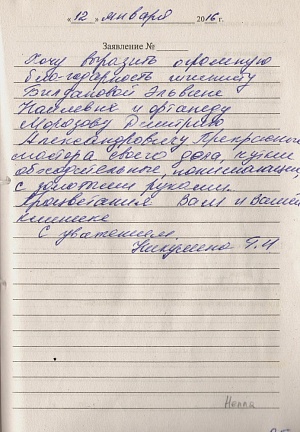 « 12 » января 2016 г.
Заявление №
Хочу выразить огромную
благодарность
Билдановой Эльвине
Наилевне и ортопеду
Морозову Дмитрию
Александровичу. Прекрасные
мастера своего дела, чуткие
обходительные, понимающие
с золотыми руками.
Процветания Вам и Вашей
клинике
С уважением
Никулина Г.И